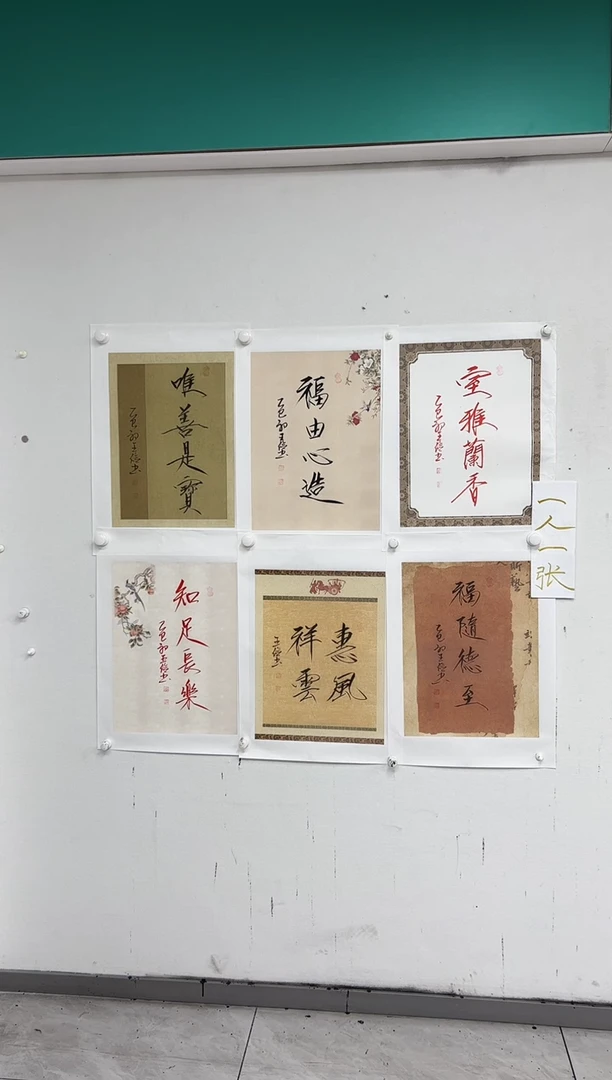 唯善是寶
乙巳
福由心造
乙巳
室雅蘭香
乙巳
一人一张
知足長樂
乙巳
惠風
祥雲
福隨德至
乙巳